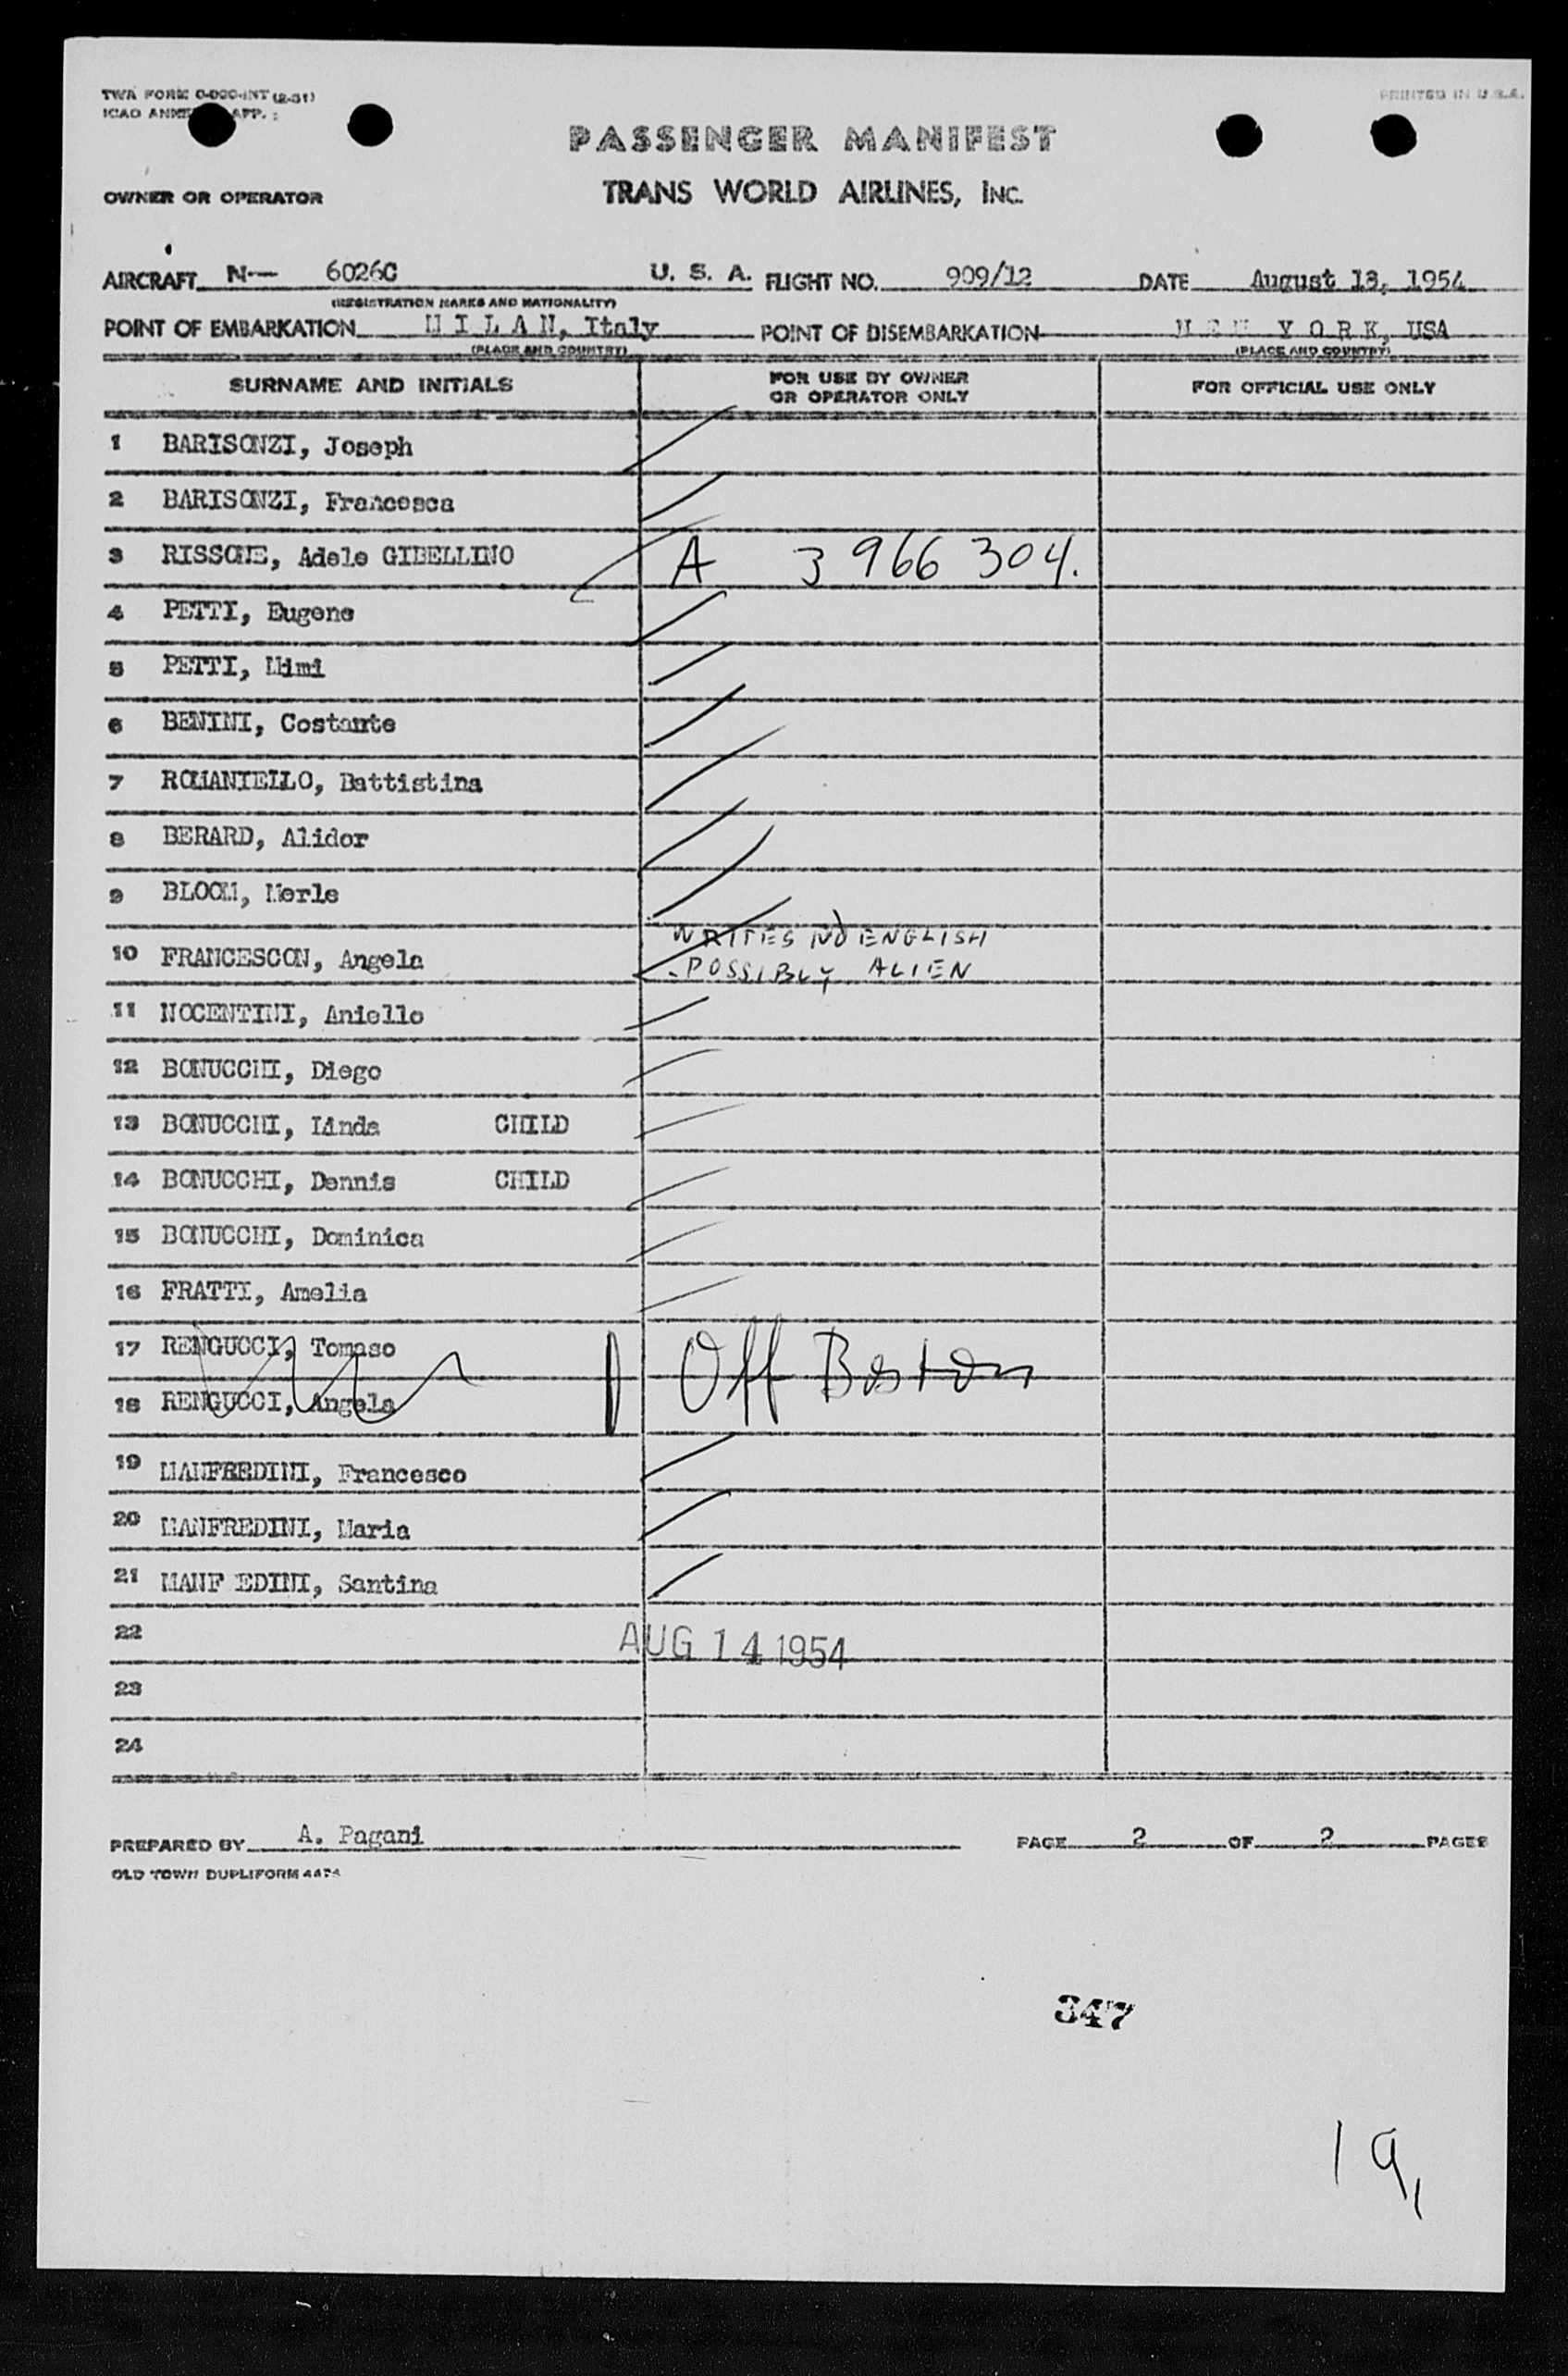 TWA FORM (2-51)
PRINTED IN U.S.A.
ICAO APP.
PASSENGER MANIFEST
OWNER OR OPERATOR
TRANS WORLD AIRLINES, INC.
AIRCRAFT N-- 6026C U. S. A. FLIGHT NO. 909/12 DATE August 13, 1954
(REGISTRATION MARKS AND NATIONALITY)
POINT OF EMBARKATION M I L A N, Italy POINT OF DISEMBARKATION N E W Y O R K, USA
(PLACE AND COUNTRY) (PLACE AND COUNTRY)
SURNAME AND INITIALS
FOR USE BY OWNER
OR OPERATOR ONLY
FOR OFFICIAL USE ONLY
1 BARISONZI, Joseph
2 BARISONZI, Francesca
3 RISSONE, Adele GIBELLINO A 3 966 304.
4 PETTI, Eugene
5 PETTI, Mimi
6 BENINI, Costante
7 ROMANIELLO, Battistina
8 BERARD, Alidor
9 BLOOM, Merle
WRITES NO ENGLISH
10 FRANCESCON, Angela - POSSIBLY ALIEN
11 NOCENTINI, Aniello
12 BONUCCHI, Diego
13 BONUCCHI, Linda CHILD
14 BONUCCHI, Dennis CHILD
15 BONUCCHI, Dominica
16 FRATTI, Amelia
17 RENGUCCI, Tomaso
Off Boston
18 RENGUCCI, Angela
19 MANFREDINI, Francesco
20 MANFREDINI, Maria
21 MANF EDINI, Santina
22
AUG 14 1954
23
24
PREPARED BY A. Pagani PAGE 2 OF 2 PAGES
OLD TOWN DUPLIFORM
347
19,